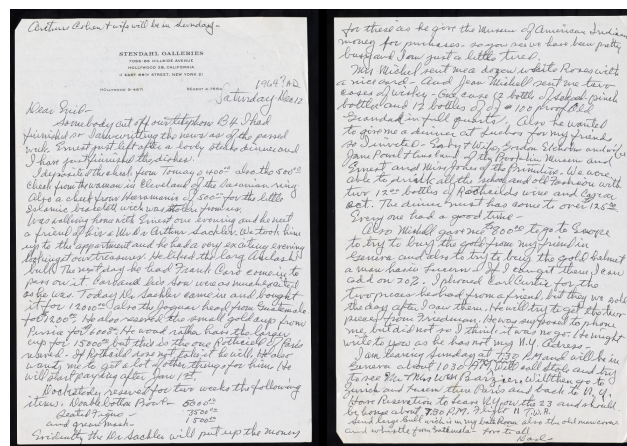 Arthur Cohen + wife will be in Sunday -
STENDAHL GALLERIES
7055-65 HILLSIDE AVENUE
HOLLYWOOD 28, CALIFORNIA
11 EAST 68TH STREET, NEW YORK 21
HOLLYWOOD
1964? AD
Saturday Dec 12
Dear Enib-
Somebody cut off our telephone B4 I had
finished so I am writing the news as of the passed
week. Ernest just left after a lovely steak dinner and
I have just finished the dishes.
I deposited the check from Tomay 0 400 also the 500
check from the woman in Cleveland of the Sasanian ring
Also a check from Heeramanec of 500 for the little
Islamic bowl
Was walking home with Ernest one evening and he met
a friend of his a Mr Dr Arthur Sackler. We took him
up to the appartment and he had a very exciting evening
looking at our treasures. He liked the large Amlash
bull. The next day he had Frank Caro come in to
pass on it. Caro and his son was as much excited
as he was. Today Dr Sackler came in and bought
it for 12000 also the Jaguar head from Guatemala
for 1200. He also reserved the small gold cup from
Persia for 6000. He would rather have the larger
cup for 15000 but this is the one Rothschild of Paris
reserved - If Rothschild does not take it he will. He also
wants me to get a lot of other things for him. He
will start paying after Jan 1st.
reserved for two weeks the following
items. Double bottom Bowl - 5000
Seated Figure - 3500
and great mask 1500
Evidently the Dr Sackler will put up the money
for these as he give the Museum of American Indian
money for purchases. so you see we have been pretty
busy and I am just a little tired.
Mrs Michel sent me a dozen white Roses with
a nice card - And Jean Michel sent me two
cases of wiskey - One case 12 bottle of pinch
bottle and 12 bottles of #100 proof Old
Grandad in full quarts. Also he wanted
to give me a dinner at Luchow for my friends
so I invited - Gaby + Wife, Gordon Ekholm and wife
Jane Powell + husband of the Brooklin Museum and
Ernest and Miss Jones of the Primitive. We were
able to drink all the schotch and old fashion with
two 12 bottles of Rothschilds wine and Cognac
ect. The dinner must has come to over 125
Every one had a good time -
Also Michel gave me 800 to go to Europe
to try to buy the gold from my friend in
Geneva and also to try to buy the gold helmet
a man has in Lucern. If I can get them I can
add on 20%. I phoned Earl Curtie for the
two pieces he had from a friend, but they we sold
the day after I saw them. He will try to get the two
pieces from Friedman. He was supposed to phone
me, but did not so I think it was no go. He might
write to you as he has not my N.Y. Adress -
I am leaving Sunday at 7:30 P.M and will be in
Geneva about 10:30 A.M. Will sell stols and try
to see Mr + Mrs Wm Barzin. Will then go to
Zurich and Lucern then Paris and back to N.Y.
Have Reservation to leave N.Y on the 23 and should
be home about 7:30 P.M. Flight N T.W.A.
Send large bull which is in my bath Room also the old man carved
and whistle from Guatemala